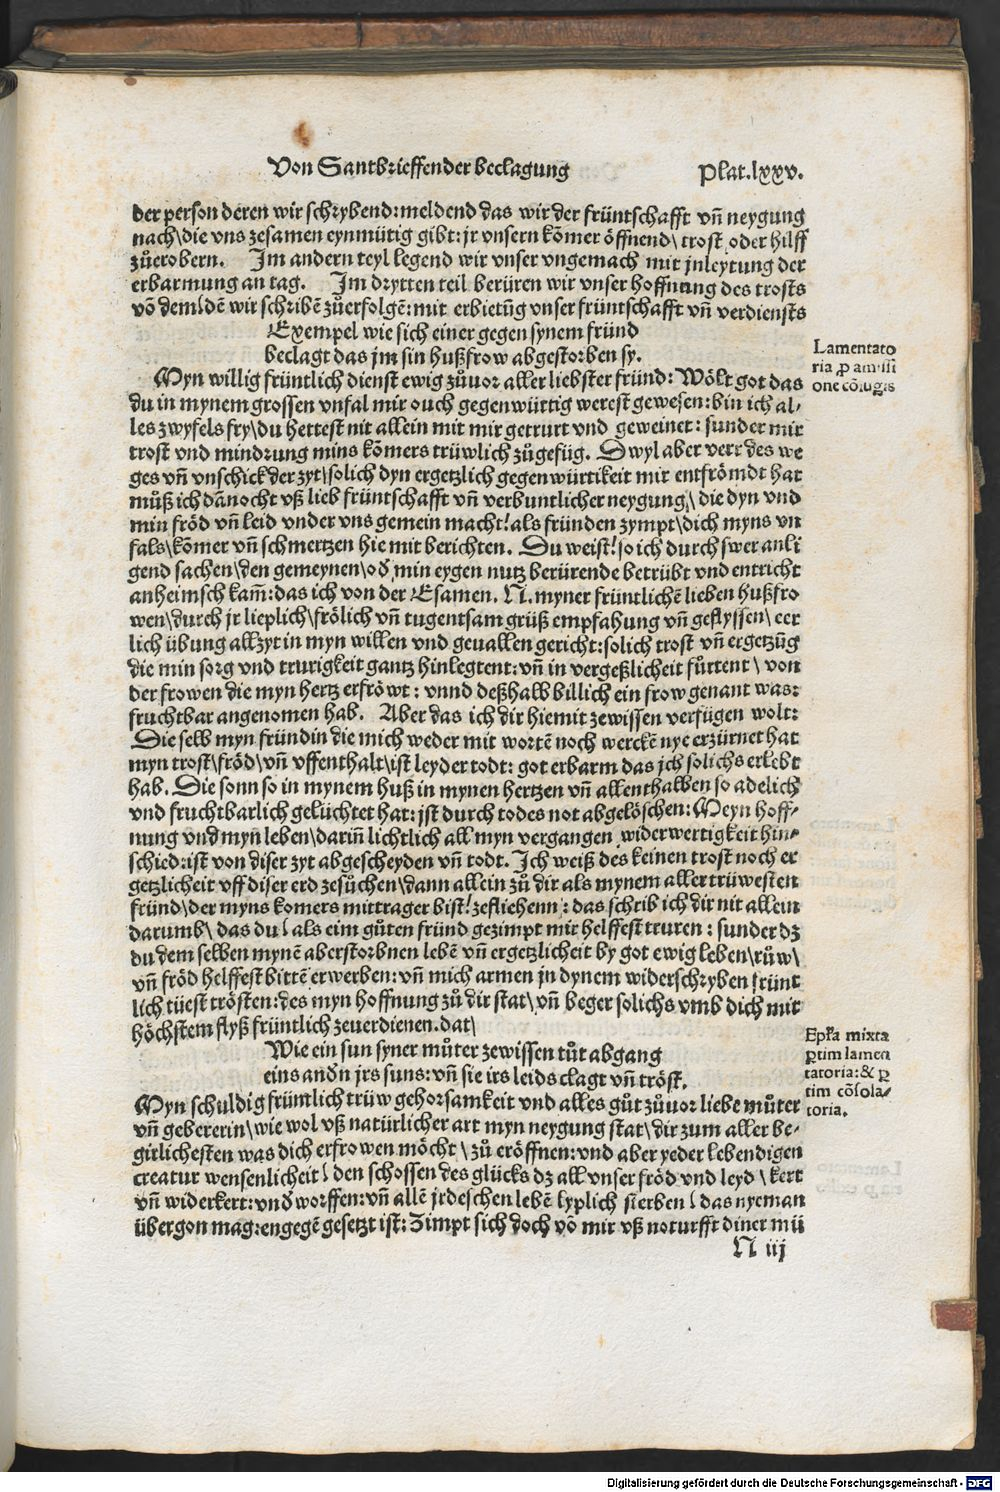 Von Santbrieffen der beclagung Plat.lxxv.
der person deren wir schrybend: meldend das wir der früntschafft vñ neygung
nach\ die vns zesamen eynmütig gibt: jr vnsern kõmer öffnend\ trost oder hilff
zůerobern. Im andern teyl legend wir vnser vngemach mit jnleytung der
erbarmung an tag. Im drytten teil berüren wir vnser hoffnung des trosts
võ dem\ dẽ wir schribẽ zůerfolgẽ: mit erbietũg vnser früntschafft vñ verdiensts
Exempel wie sich einer gegen synem fründ
beclagt das jm sin hußfrow abgestorben sy.
Lamentato
ria ꝓ amissi
one cõiugis
Myn willig früntlich dienst ewig zůuor aller liebster fründ: Wölt got das
du in mynem grossen vnfal mir ouch gegenwürtig werest gewesen: bin ich al-
les zwyfels fry\ du hettest nit allein mit mir getrurt vnd geweinet: sunder mir
trost vnd mindrung mins kõmers trüwlich zůgefüg. Dwyl aber verr des we
ges vñ vnschick der zyt\ solich dyn ergetzlich gegenwürtikeit mir entfrömdt hat
můß ich dãnocht vß lieb früntschafft vñ verbuntlicher neygung\ die dyn vnd
min fröd vñ leid vnder vns gemein macht! als fründen zympt\ dich myns vn
fals\ kõmer vñ schmertzen hie mit berichten. Du weist! so ich durch swer anli
gend sachen\ den gemeynen\ ođ min eygen nutz berürende betrübt vnd entricht
anheimsch kam̃: das ich von der Esamen. N. myner früntlichẽ lieben hußfro
wen\ durch jr lieplich\ frölich vñ tugentsam grüß empfahung vñ geflyssen\ eer
lich übung allzyt in myn willen vnd geuallen gericht: solich trost vñ ergetzũg
die min sorg vnd trurigkeit gantz hinlegtent: vñ in vergeßlicheit fůrtent\ von
der frowen die myn hertz erfröwt: vnnd deßhalb billich ein frow genant was:
fruchtbar angenomen hab. Aber das ich dir hiemit zewissen verfügen wolt:
Die selb myn fründin die mich weder mit wortẽ noch werckẽ nye erzürnet hat
myn trost\ fröd\ vñ vffenthalt\ ist leyder todt: got erbarm das jch solichs erlebt
hab. Die sonn so in mynem huß in mynen hertzen vñ allenthalben so adelich
vnd fruchtbarlich gelüchtet hat: jst durch todes not abgelöschen: Meyn hoff-
nung vnd myn leben\ dariñ lichtlich all myn vergangen widerwertigkeit hin-
schied: ist von diser zyt abgescheyden vñ todt. Ich weiß des keinen trost noch er
getzlicheit vff diser erd zesůchen\ dann allein zů dir als mynem aller trüwesten
fründ\ der myns komers mittrager bist! zefliehenn: das schrib ich dir nit allein
darumb\ das du! als eim gůten fründ gezimpt mir helffest truren: sunder dz
du dem selben mynẽ aberstorbnen lebẽ vñ ergetzlicheit by got ewig leben\ růw\
vñ fröd helffest bittẽ erwerben: vñ mich armen jn dynem widerschryben frünt
lich tüest trösten: des myn hoffnung zů dir stat\ vñ beger solichs vmb dich mit
höchstem flyß früntlich zeuerdienen. dat\
Wie ein sun syner můter zewissen tůt abgang
eins andñ jrs suns: vñ sie irs leids clagt vñ tröst.
Epl̃a mixta
ꝑtim lamen
tatoria: & ꝑ
tim cõsola-
toria.
Myn schuldig früntlich trüw gehorsamkeit vnd alles gůt zůuor liebe můter
vñ gebererin\ wie wol vß natürlicher art myn neygung stat\ dir zum aller be-
girlichesten was dich erfrowen möcht\ zů eröffnen: vnd aber yeder lebendigen
creatur wensenlicheit! den schossen des glücks dz all vnser fröd vnd leyd\ kert
vñ widerkert: vnđ worffen: vñ allẽ jrdeschen lebẽ lyplich sterben! das nyeman
übergon mag: engegẽ gesetzt ist: Zimpt sich doch võ mir vß noturfft diner mü
N iij
Digitalisierung gefördert durch die Deutsche Forschungsgemeinschaft - DFG